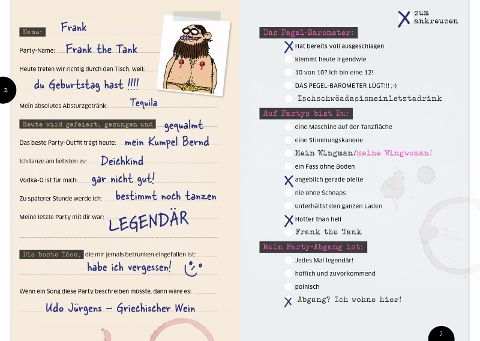 Name: Frank
Party-Name: Frank the Tank
Heute treten wir richtig durch den Tisch, weil:
du Geburtstag hast !!!!
Mein absolutes Absturzgetränk: Tequila
Heute wird gefeiert, gesungen und gequalmt
Das beste Party-Outfit trägt heute: mein Kumpel Bernd
Ich tanze am liebsten zu: Deichkind
Vodka-O ist für mich: gar nicht gut!
Zu späterer Stunde werde ich: bestimmt noch tanzen
Meine letzte Party mit dir war: LEGENDÄR
Die beste Idee, die mir jemals betrunken eingefallen ist:
habe ich vergessen!
Wenn ein Song diese Party beschreiben müsste, dann wäre es:
Udo Jürgens – Griechischer Wein
2
X zum
ankreuzen
Das Pegel-Barometer:
X Hat bereits voll ausgeschlagen
klemmt heute irgendwie
10 von 10? Ich bin eine 12!
DAS PEGEL-BAROMETER LÜGT!!! ;-)
Ischschwöadasismeinletstadrink
Auf Partys bist Du:
eine Maschine auf der Tanzfläche
eine Stimmungskanone
Mein Wingman/meine Wingwoman!
ein Fass ohne Boden
X angeblich gerade pleite
nie ohne Schnaps
unterhältst den ganzen Laden
X Hotter than hell
Frank the Tank
Mein Party-Abgang ist:
Jedes Mal legendär!
höflich und zuvorkommend
polnisch
X Abgang? Ich wohne hier!